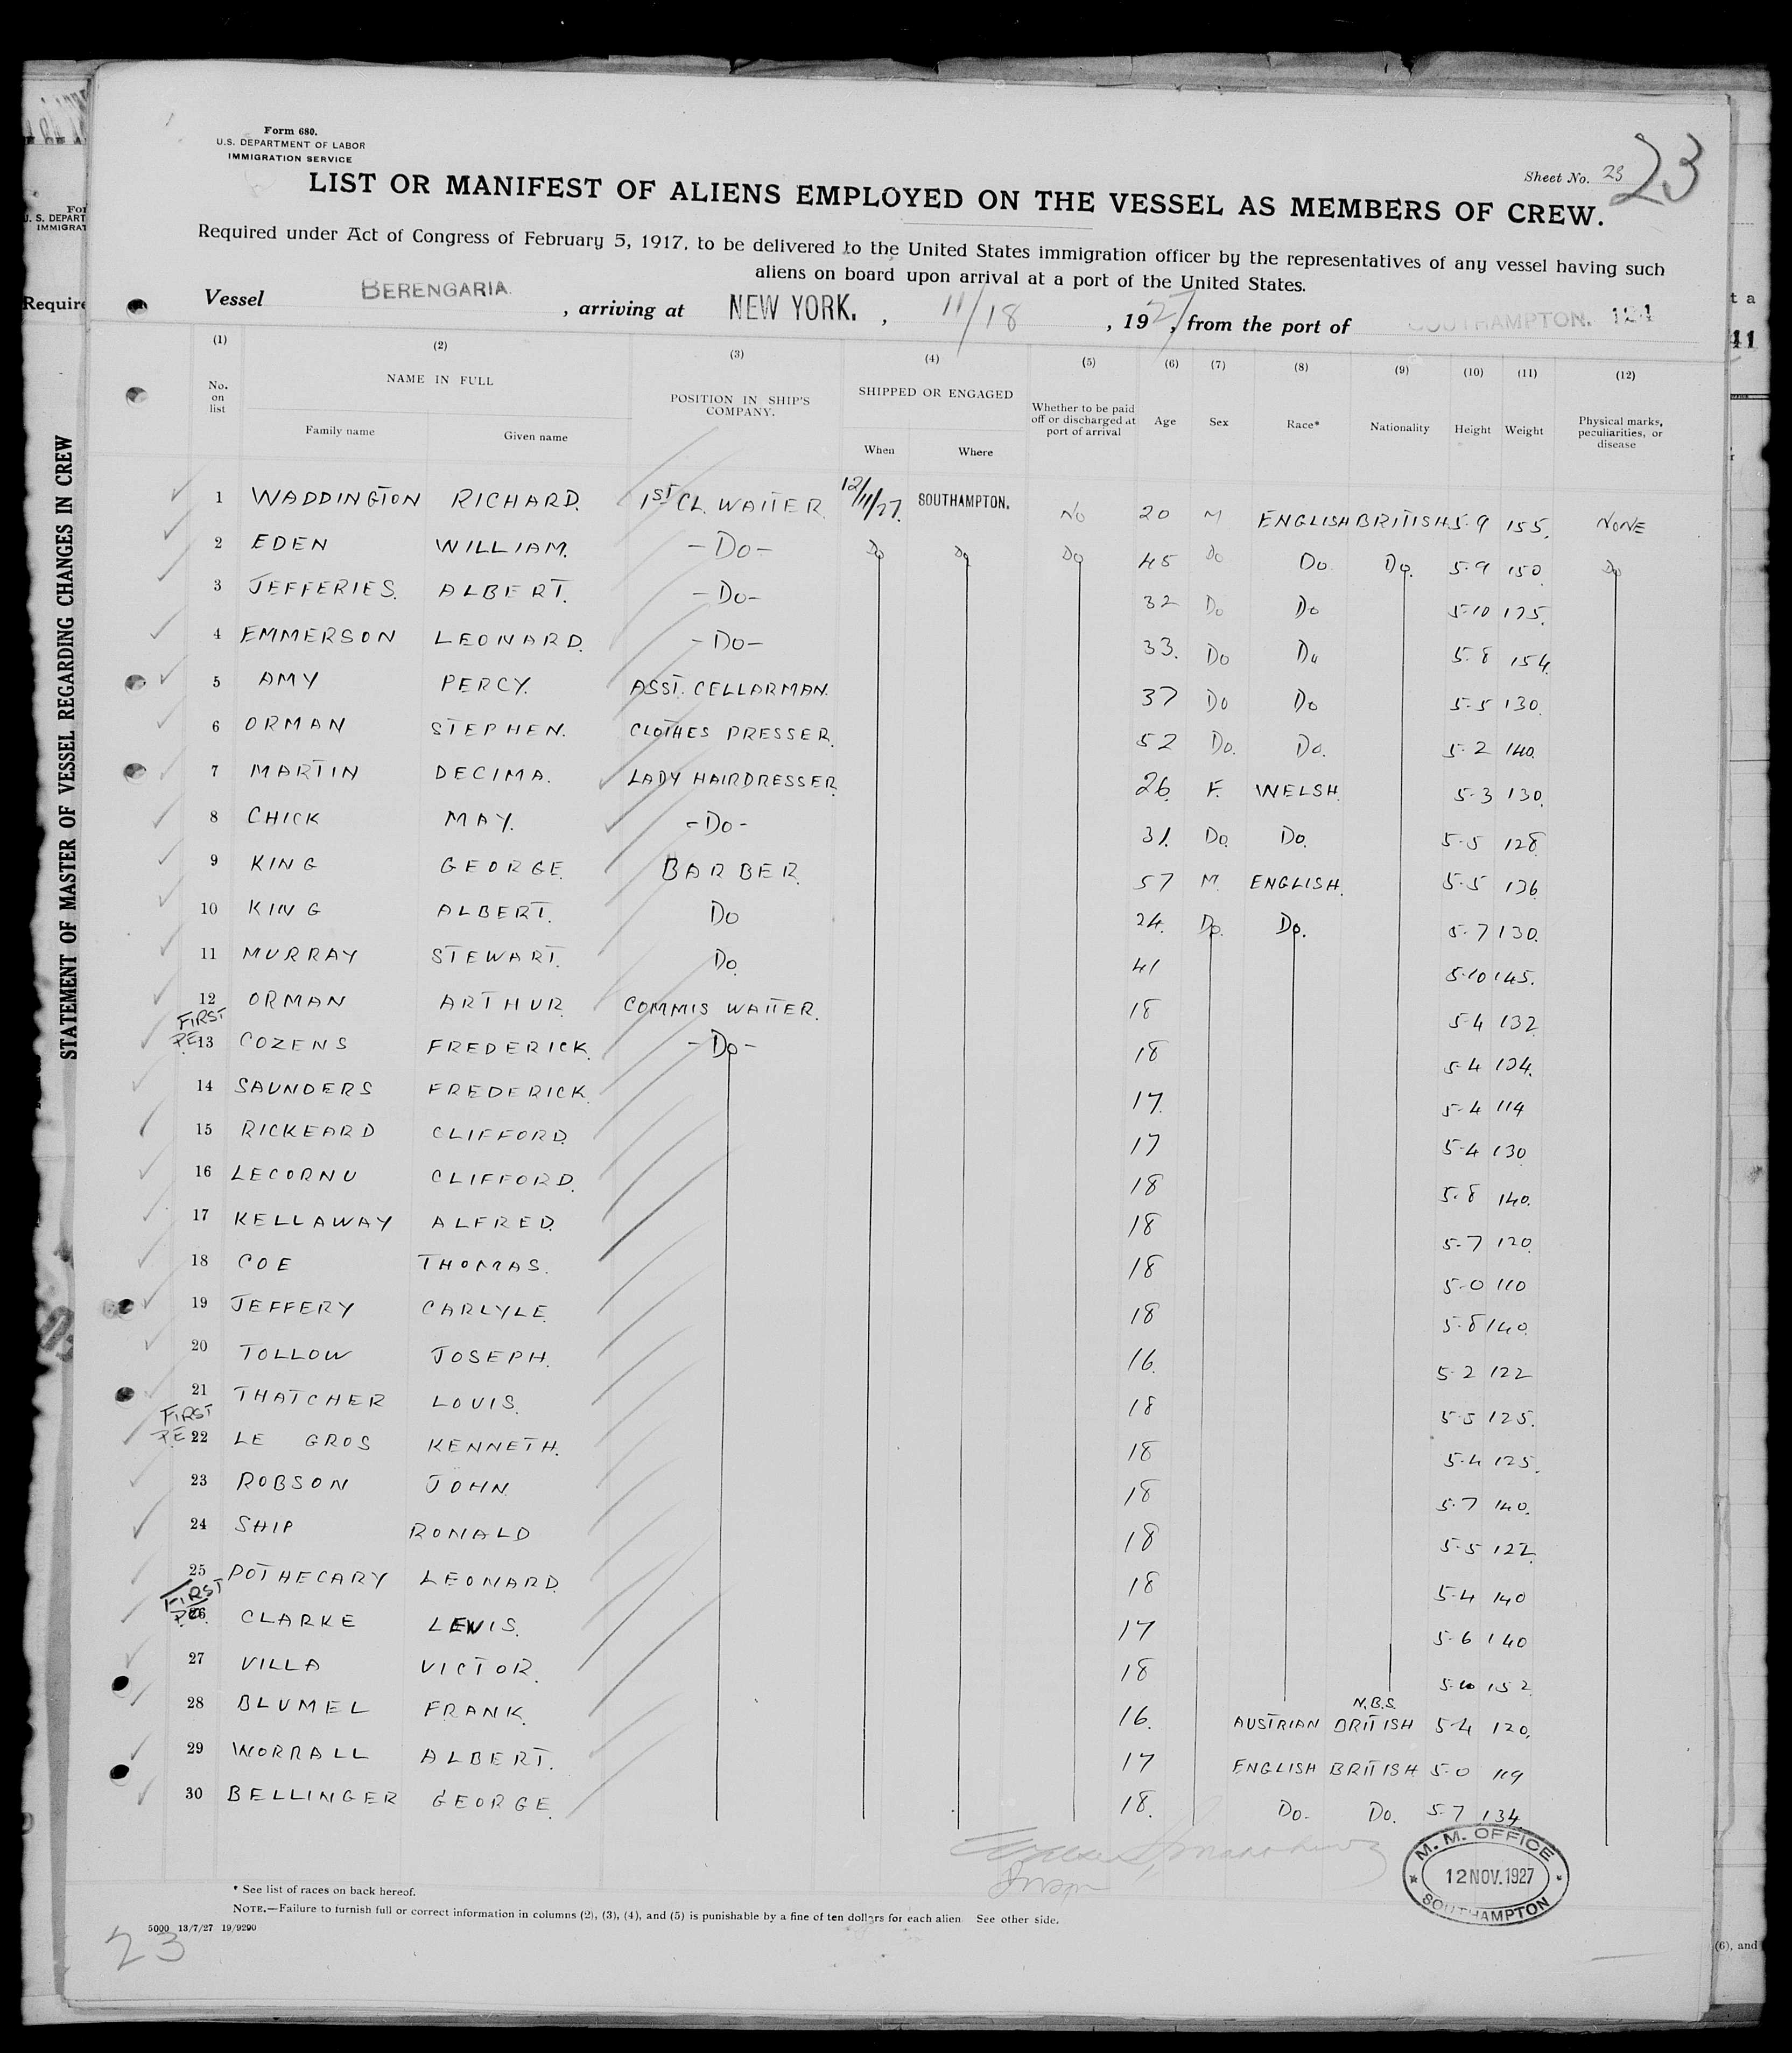 Form 680.
U.S. DEPARTMENT OF LABOR
IMMIGRATION SERVICE
Sheet No. 23
23
LIST OR MANIFEST OF ALIENS EMPLOYED ON THE VESSEL AS MEMBERS OF CREW.
Required under Act of Congress of February 5, 1917, to be delivered to the United States immigration officer by the representatives of any vessel having such
aliens on board upon arrival at a port of the United States.
Vessel BERENGARIA. , arriving at NEW YORK. , 11/18 , 1927, from the port of SOUTHAMPTON. 124
(1) (2) (3) (4) (5) (6) (7) (8) (9) (10) (11) (12)
No. on list NAME IN FULL Family name Given name POSITION IN SHIP'S COMPANY. SHIPPED OR ENGAGED When Where Whether to be paid off or discharged at port of arrival Age Sex Race* Nationality Height Weight Physical marks, peculiarities, or disease
1 WADDINGTON RICHARD. 1ST CL. WAITER. 12/11/27. SOUTHAMPTON. No 20 M ENGLISH BRITISH 5.9 155. NONE
2 EDEN WILLIAM. -Do- Do Do Do 45 Do Do Do. 5.9 150. Do
3 JEFFERIES. ALBERT. -Do- 32 Do Do 5-10 175.
4 EMMERSON LEONARD. -Do- 33. Do Do 5.8 154.
5 AMY PERCY. ASST. CELLARMAN. 37 Do Do 5-5 130.
6 ORMAN STEPHEN. CLOTHES PRESSER. 52 Do. Do. 5.2 140.
7 MARTIN DECIMA. LADY HAIRDRESSER 26. F. WELSH. 5-3 130.
8 CHICK MAY. -Do- 31. Do. Do. 5-5 128.
9 KING GEORGE. BARBER. 57 M. ENGLISH. 5-5 136
10 KING ALBERT. Do 24. Do. Do. 5-7 130.
11 MURRAY STEWART. Do. 41 5-10 145.
12 ORMAN ARTHUR. COMMIS WAITER. 18 5-4 132
FIRST
P.E. 13 COZENS FREDERICK. -Do- 18 5-4 134.
14 SAUNDERS FREDERICK. 17. 5-4 114
15 RICKEARD CLIFFORD. 17 5-4 130
16 LECORNU CLIFFORD. 18 5.8 140.
17 KELLAWAY ALFRED. 18 5-7 120.
18 COE THOMAS. 18 5-0 110
19 JEFFERY CARLYLE. 18 5.8 140.
20 TOLLOW JOSEPH. 16. 5.2 122
21 THATCHER LOUIS. 18 5-5 125.
FIRST
P.E. 22 LE GROS KENNETH. 18 5.4 125.
23 ROBSON JOHN. 18 5.7 140.
24 SHIP RONALD 18 5-5 122.
25 POTHECARY LEONARD. 18 5-4 140
FIRST
P.E. 26 CLARKE LEWIS. 17 5-6 140
27 VILLA VICTOR. 18 5-10 152
N.B.S.
28 BLUMEL FRANK. 16. AUSTRIAN BRITISH 5-4 120.
29 WORRALL ALBERT. 17 ENGLISH BRITISH 5-0 119
30 BELLINGER GEORGE. 18. Do. Do. 5-7 134.
M. M. OFFICE
12 NOV. 1927
SOUTHAMPTON
* See list of races on back hereof.
NOTE.—Failure to furnish full or correct information in columns (2), (3), (4), and (5) is punishable by a fine of ten dollars for each alien. See other side.
5000 13/7/27 19/9290
23
STATEMENT OF MASTER OF VESSEL REGARDING CHANGES IN CREW
U. S. DEPART
IMMIGRAT
Require
t a
41
(6), and